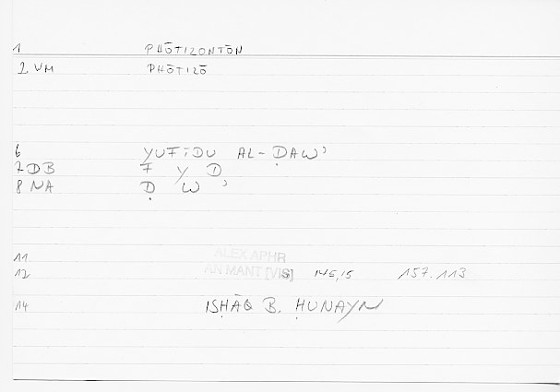 1 PHŌTIZONTŌN
2 VM PHŌTIZŌ
6 YUFĪDU AL-ḌAWʾ
7 DB F Y D
8 NA Ḍ W ʾ
11 ALEX.APHR
12 AN MANT [VIS] 145,15 157.113
14 ISḤĀQ B. ḤUNAYN